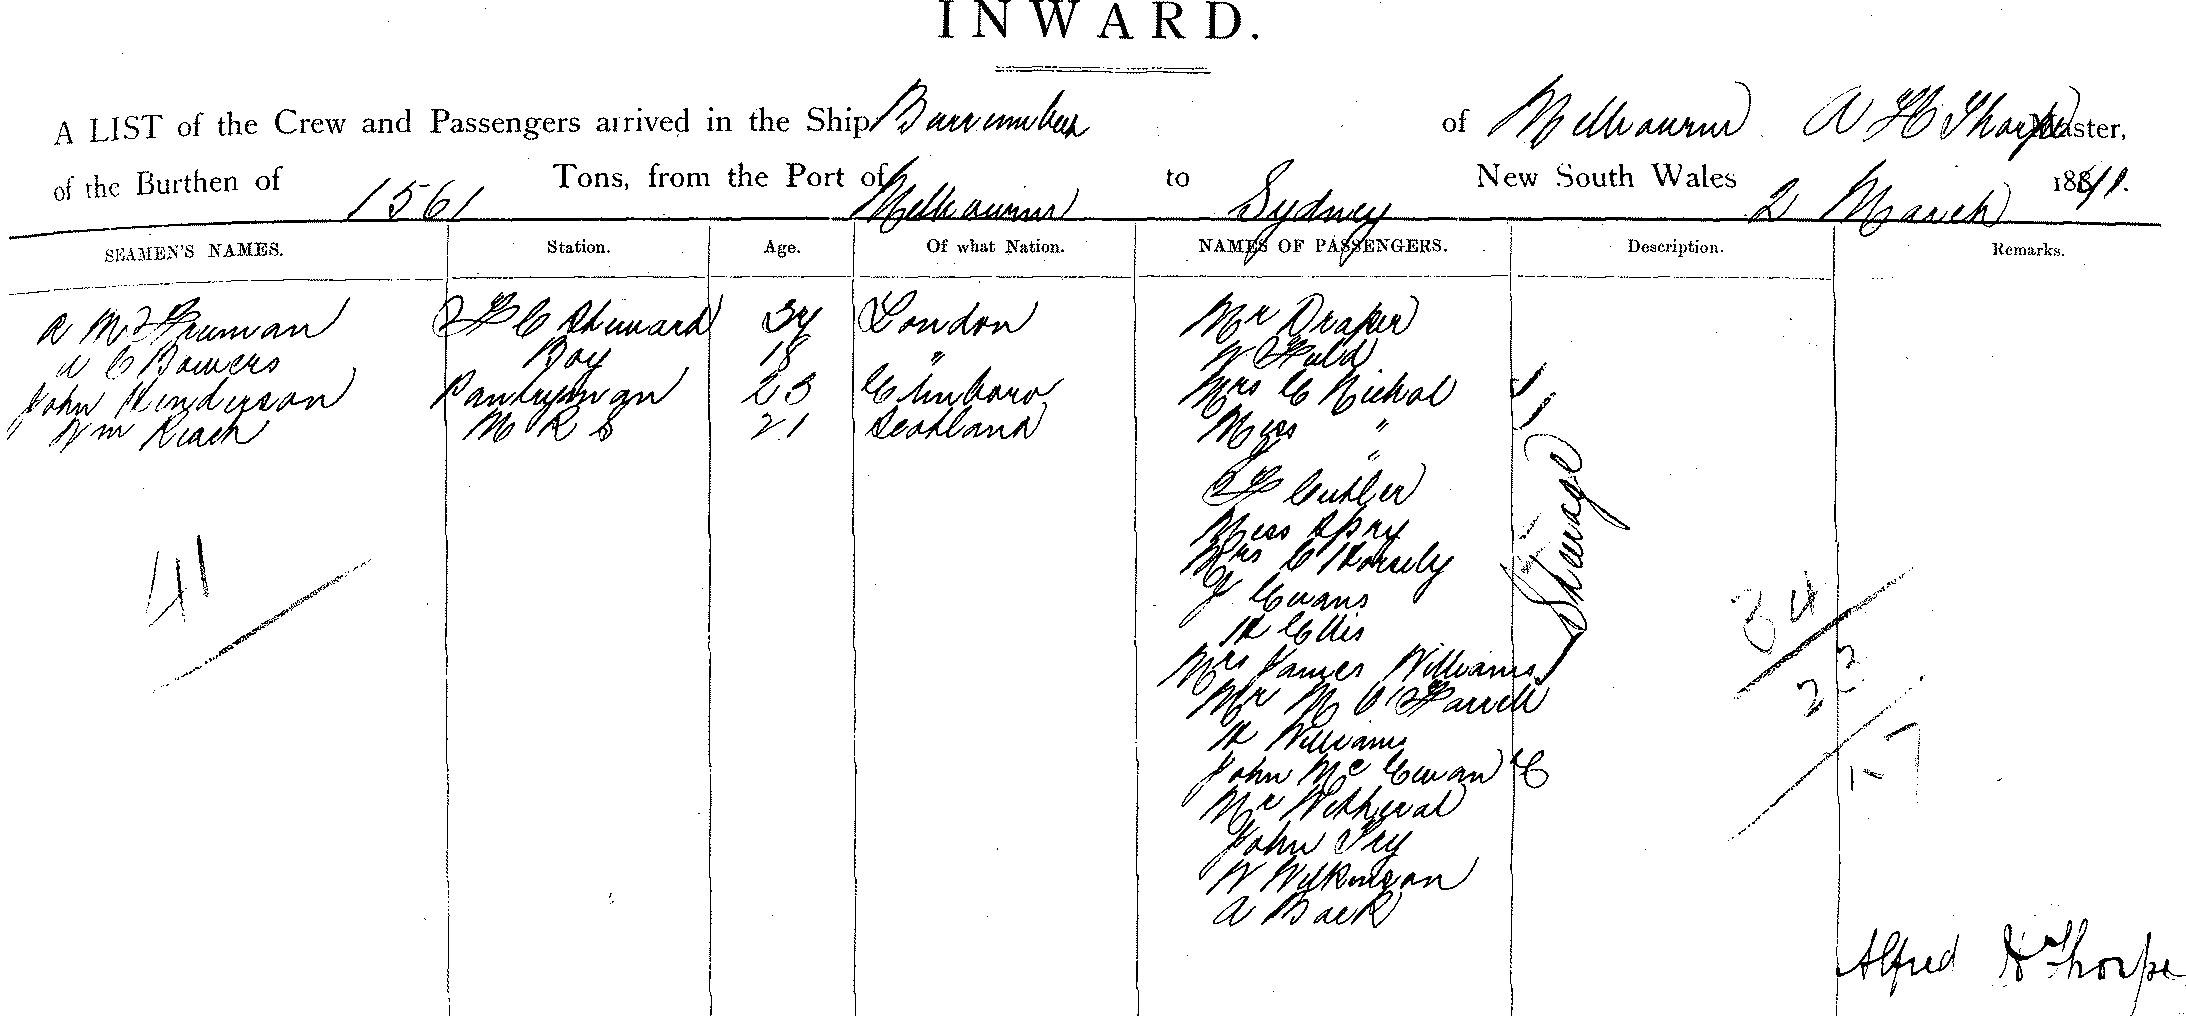 INWARD.
A LIST of the Crew and Passengers arrived in the Ship Burrumbeet of Melbourne A H Thorpe Master,
of the Burthen of 1561 Tons, from the Port of Melbourne to Sydney New South Wales 2 March 1891.
SEAMEN'S NAMES. Station. Age. Of what Nation. NAMES OF PASSENGERS. Description. Remarks.
A Freeman F C Steward 34 London Mr Draper
C Bowers Boy 18 " W Field
John Henderson Pantryman 23 Edinboro Mrs C Nichol
Wm Reach M R S 21 Scotland Miss "
"
F Cutler
Miss Spry
Mrs C Horsely
J Evans
H Ellis
Mrs James Williams
Steerage
Mr M O Farrell
H Williams
John McEwan C
Mr Witheral
John Fry
W Wilkinson
A Back
41
34
22
17
Alfred H Thorpe